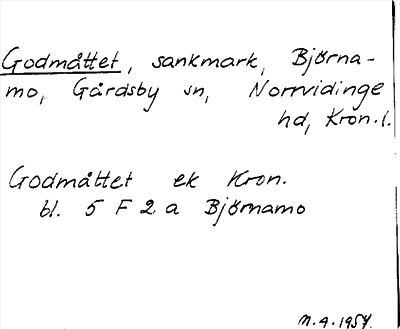 Godmåttet, sankmark, Björna-
mo, Gårdsby sn, Norrvidinge
hd, Kron.l.
Godmåttet ek Kron.
bl. 5 F 2 a Björnamo
M.A. 1957.